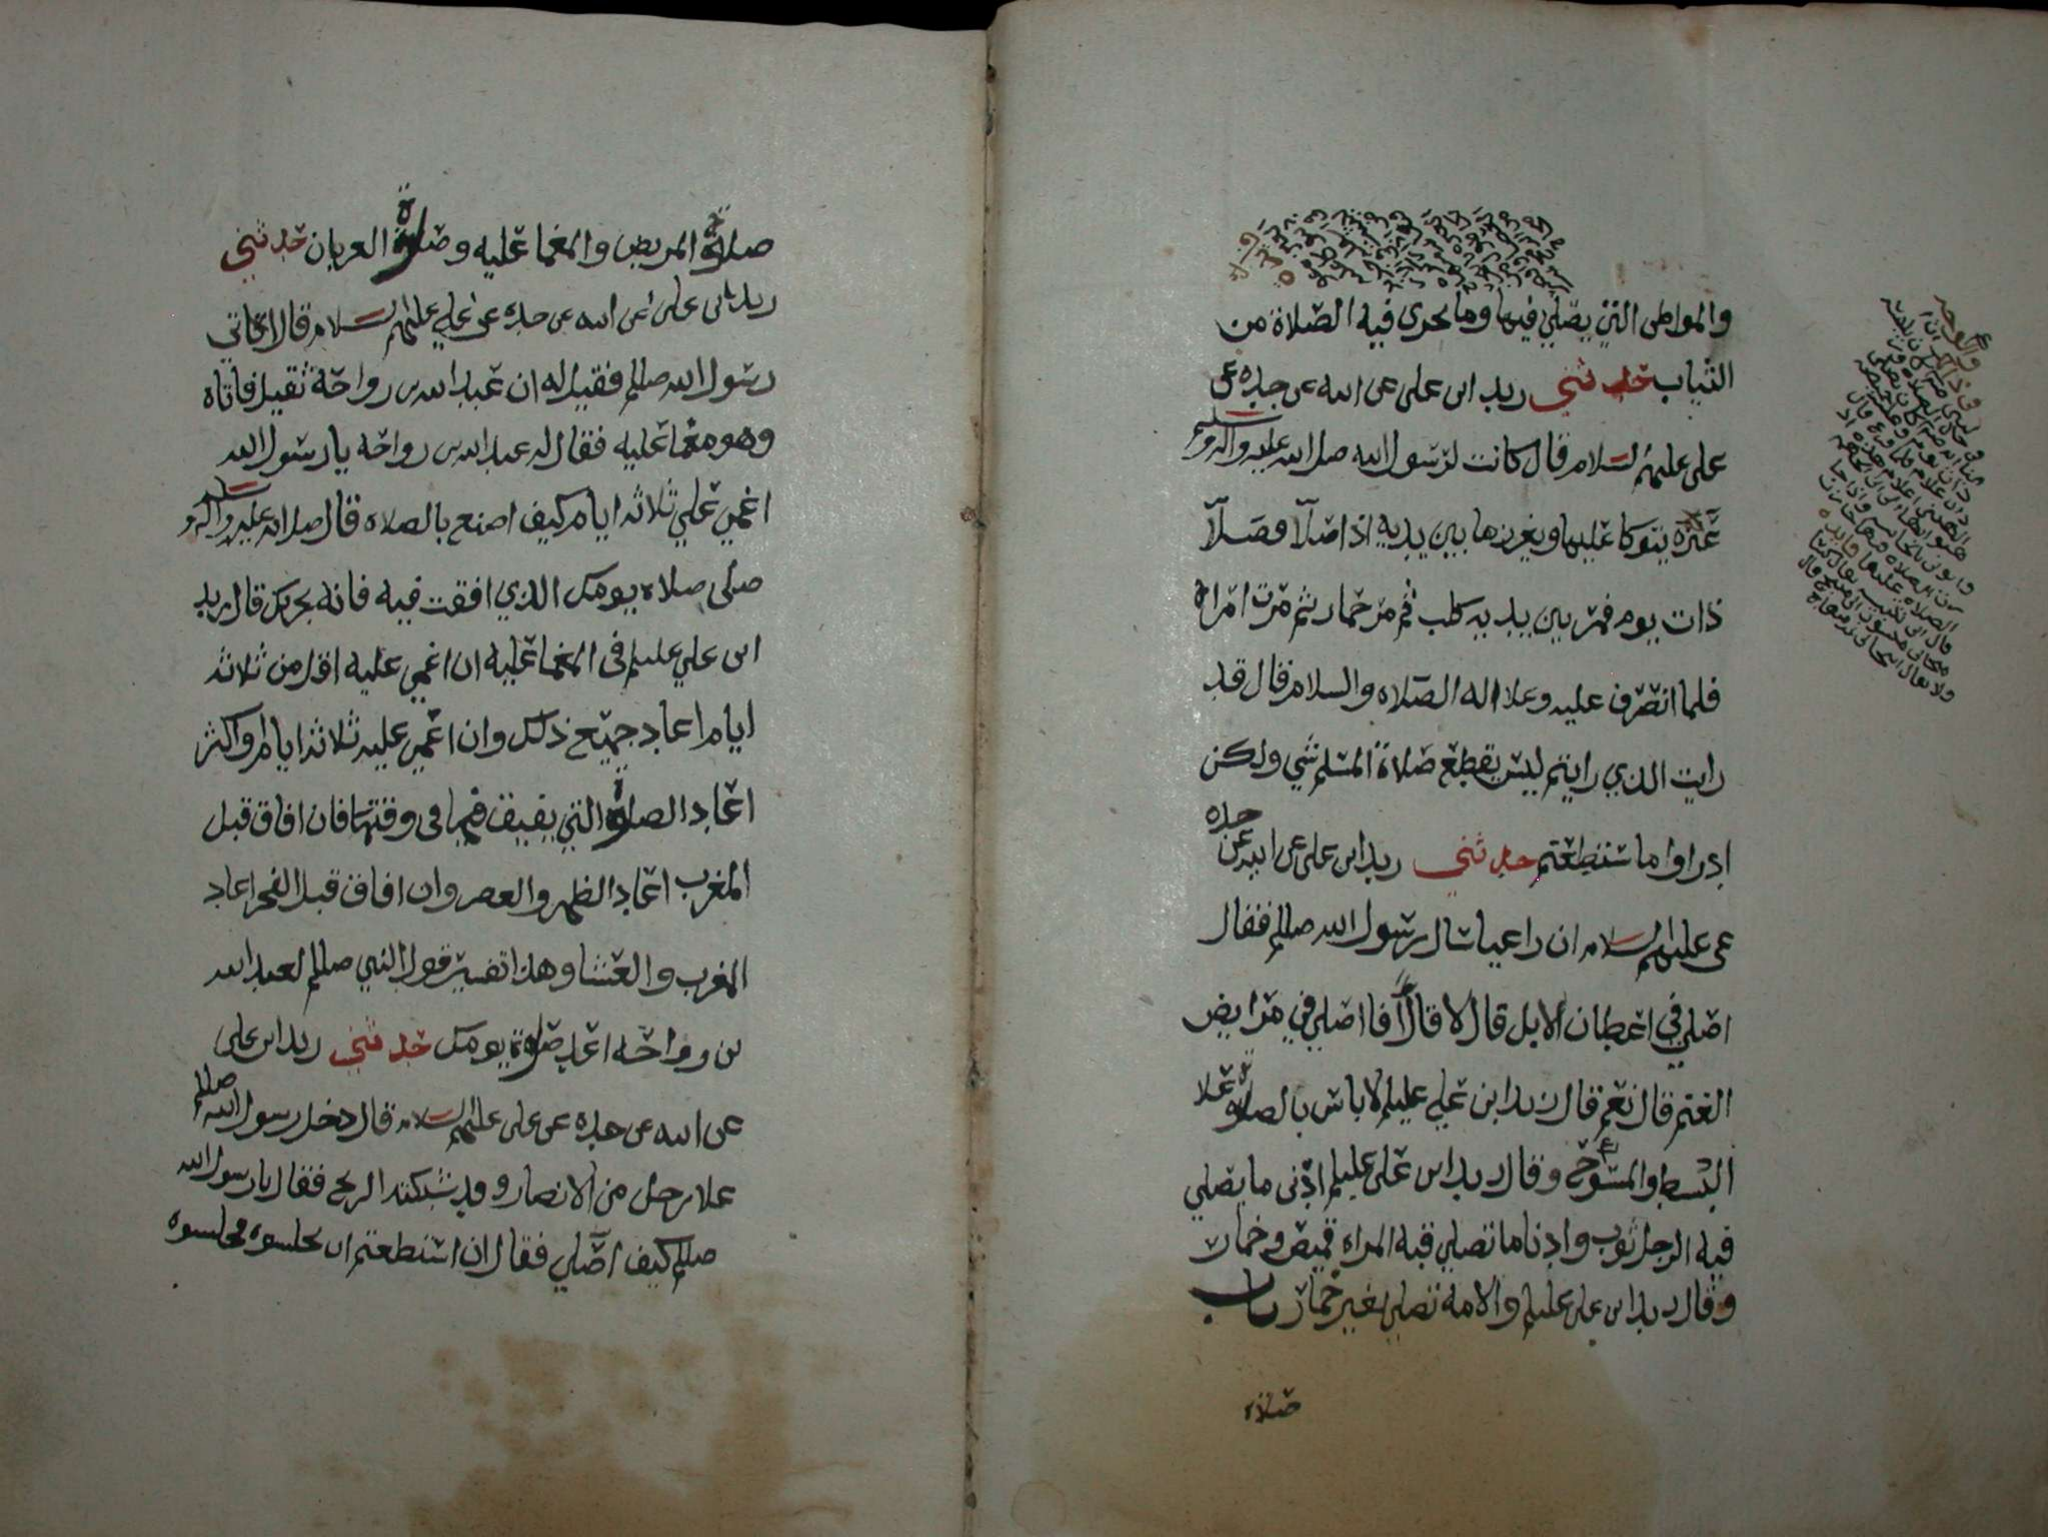 والمواطن التي يصلي فيها وما يجزي فيه الصلاة من
الثياب حدثني زيد ابن علي عن ابيه عن جده عن
علي عليهم السلام قال كانت لرسول الله صلى الله عليه واله وسلم
عنزة يتوكا عليها ويغرزها بين يديه اذا صلا فصلا
ذات يوم فمر بين يديه كلب ثم مر حمار ثم مرت امراة
فلما انصرف عليه وعلا اله الصلاه والسلام قال قد
رايت الذي رايتم ليس يقطع صلاة المسلم شي ولكن
ادراوا ما ستطعتم حدثني زيد ابن علي عن ابيه عن جده
عن علي عليهم السلام ان راعيا سال رسول الله صللم فقال
اصلي في اعطان الابل قال لا قال افاصلي في مرابض
الغنم قال نعم قال زيد ابن علي عليلم لا باس بالصلوة علا
البسط والمسوح وقال زيد ابن علي عليلم ادنى ما يصلي
فيه الرجل ثوب وادنا ما تصلي فيه المراه قميص وخمار
وقال زيد ابن علي عليلم والامة تصلي بغير خمار باب
صلاه
صلاة المريض والمغما عليه وصلوة العريان حدثني
زيد بن علي عن ابيه عن جده عن علي عليهم السلام قال اتى
رسول الله صللم فقيل له ان عبد الله بن رواحة ثقيل فاتاه
وهو مغما عليه فقال له عبد الله بن رواحة يا رسول الله
اغمي علي ثلاثه ايام كيف اصنع بالصلاه قال صلى الله عليه واله وسلم
صلى صلاه يومك الذي افقت فيه فانه يجزيك قال زيد
ابن علي عليلم في المغما عليه ان اغمي عليه اقل من ثلاثه
ايام اعاد جميع ذلك وان اغمي عليه ثلاثه ايام او اكثر
اعاد الصلوة التي يفيق فيها في وقتها فان افاق قبل
المغرب اعاد الظهر والعصر وان افاق قبل الفجر اعاد
المغرب والعشا وهذا تفسير قول النبي صللم لعبد الله
بن رواحة اعد صلوة يومك حدثني زيد ابن علي
عن ابيه عن جده عن علي عليهم السلام قال دخل رسول الله صللم
علا رجل من الانصار وقد شبكته الريح فقال يا رسول الله
صللم كيف اصلي فقال ان استطعتم ان تجلسوه فاجلسوه